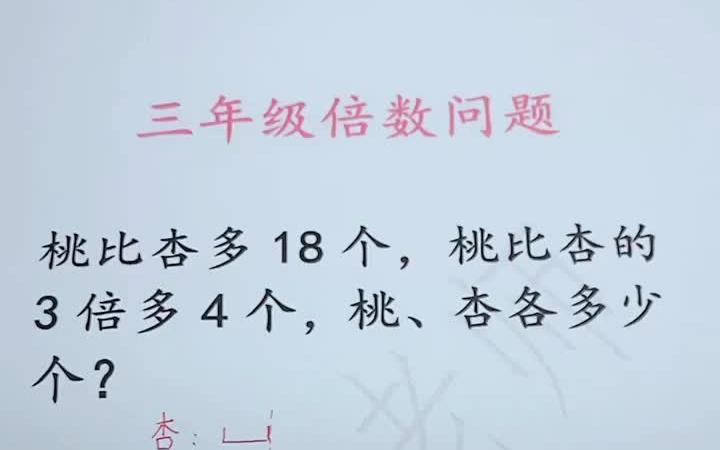 三年级倍数问题
桃比杏多 18 个，桃比杏的
3 倍多 4 个，桃、杏各多少
个？
杏：